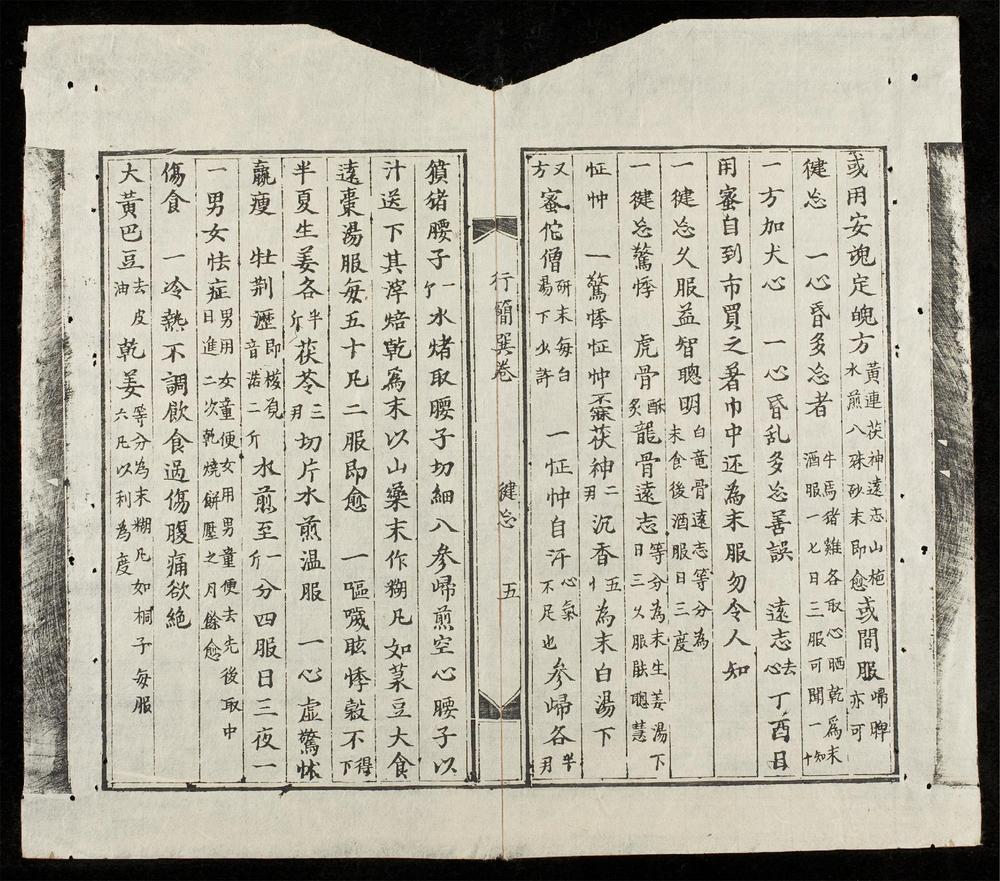 或用安魂定魄方黃連茯神遠志山梔水煎八珠砂末即愈或間服歸脾亦可
健忘 一心昏多忘者 牛馬猪雞各取心晒乾為末酒服一七日三服可聞一知十
一方加犬心 一心昏乱多忘善誤 遠志去心丁酉日
用蜜自到市買之著巾中还為末服勿令人知
一健忘久服益智聰明白竜骨遠志等分為末食後酒服日三度
一健忘驚悸 虎骨酥炙龍骨遠志等分為末生姜湯下日三久服能聰慧
怔忡 一驚悸怔忡不寐茯神二月沉香五卜為末白湯下
又方蜜佗僧研末每白湯下少許 一怔忡自汗心氣不足也參歸各半月
行簡巽卷 健忘 五
獖猪腰子一个水煮取腰子切細八參歸煎空心腰子以
汁送下其滓焙乾爲末以山藥末作糊凡如菉豆大食
遠棗湯服每五十凡二服即愈 一嘔噦眩悸穀不得下
半夏生姜各半斤茯苓三月切片水煎温服 一心虛驚怵
羸瘦 牡荆瀝音浩二斤水煎至一斤分四服日三夜一
一男女怯症男用女童便女用男童便去先後取中日進二次乾燒餅壓之月餘愈
傷食 一冷熱不調飲食過傷腹痛欲絶
大黃巴豆去皮油乾姜等分為末糊凡如桐子每服六凡以利為度